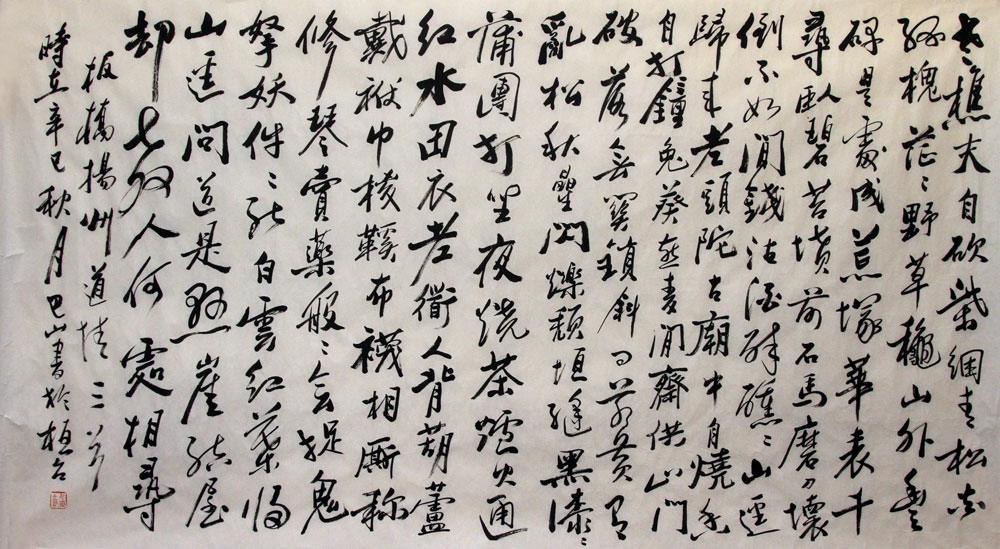 老樵夫自砍柴綑青松夾
綠槐茫〻野草穐山外豐
碑是處成荒塚華表千
尋臥碧苔墳前石馬磨刀壞
倒不如閒錢沽酒醉醺〻山逕
歸来老頭陀古廟中自燒香
自打鐘兔葵燕麥閒齋供山門
破落無関鎖斜日蒼黃有
亂松秋星閃爍頹垣縫黑漆〻
蒲團打坐夜燒茶爐火通
紅水田衣老衜人背葫蘆
戴袱巾棕鞵布襪相厮称
修琴賣藥般〻會捉鬼
拏妖件〻能白雲紅葉歸
山逕問道是懸崖結屋
却教人何處相尋
板橋揚州道情三首
時在辛巳秋月巴山書於